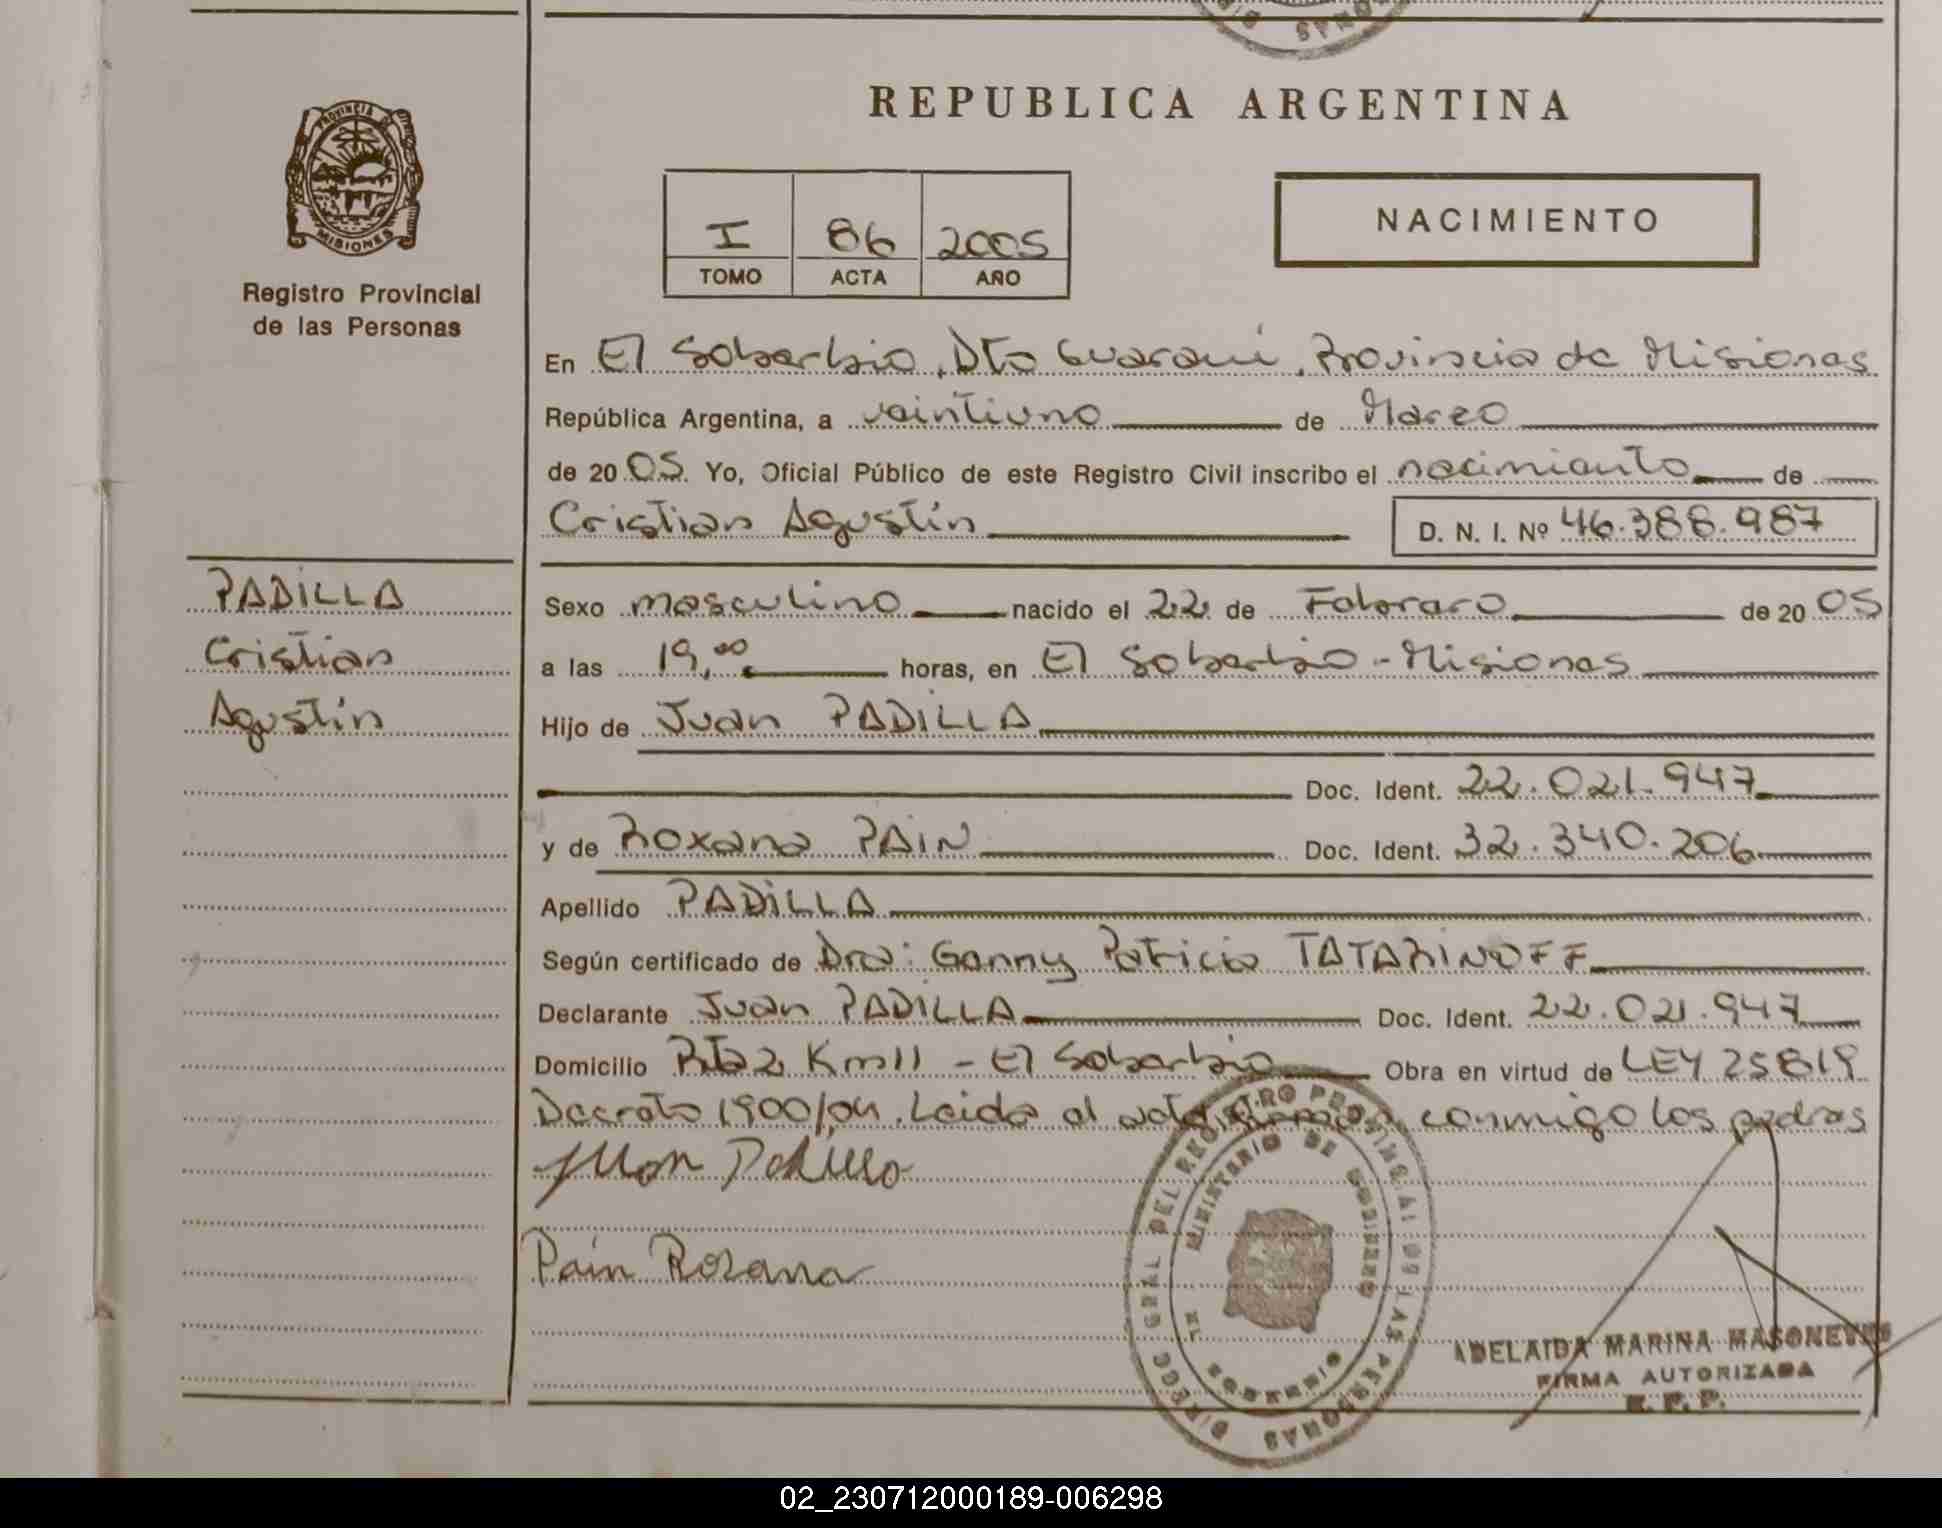 REPUBLICA ARGENTINA
PROVINCIA DE
MISIONES
Registro Provincial
de las Personas
NACIMIENTO
I 86 2005
TOMO ACTA AÑO
En El Soberbio, Dto Guaraní, Provincia de Misiones
República Argentina, a veintiuno de Marzo
de 2005. Yo, Oficial Público de este Registro Civil inscribo el nacimiento de
Cristian Agustín D. N. I. Nº 46.388.987
PADILLA
Cristian
Agustín
Sexo masculino nacido el 22 de Febrero de 2005
a las 19,00 horas, en El Soberbio - Misiones
Hijo de Juan PADILLA
Doc. Ident. 22.021.947
y de Roxana PAIN Doc. Ident. 32.340.206
Apellido PADILLA
Según certificado de Dra: Ganny Patricia TATARINOFF
Declarante Juan PADILLA Doc. Ident. 22.021.947
Domicilio Rta 2 Km 11 - El Soberbio Obra en virtud de LEY 25819
Decreto 1900/04. Leida el acta firman conmigo los padres
Juan Padilla
Pain Roxana
DIRECC GRAL DEL REGISTRO PROVINCIAL DE LAS PERSONAS
MINISTERIO DE GOBIERNO
ADELAIDA MARINA
FIRMA AUTORIZADA
R. P. P.
02_230712000189-006298